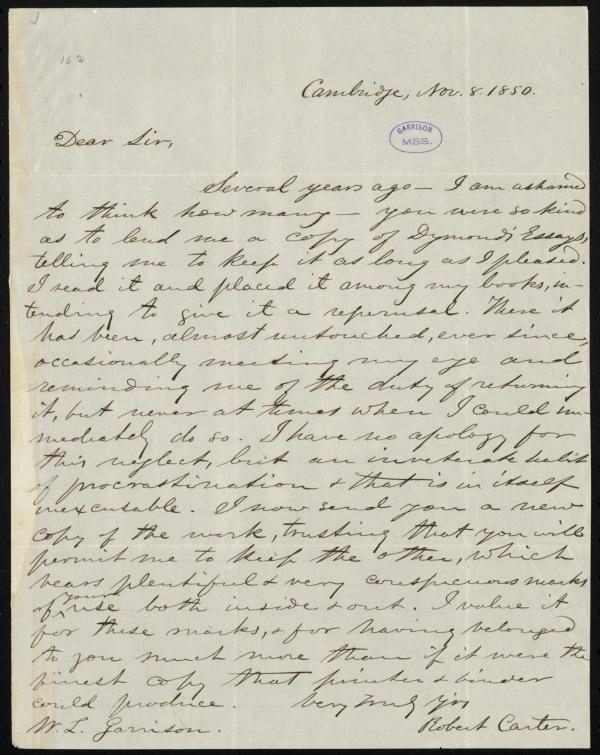 102
Cambridge, Nov. 8. 1850.
GARRISON
MSS.
Dear Sir,
Several years ago — I am ashamed
to think how many — you were so kind
as to lend me a copy of Dymond's Essays,
telling me to keep it as long as I pleased.
I read it and placed it among my books, in-
tending to give it a reperusal. There it
has been, almost untouched, ever since,
occasionally meeting my eye and
reminding me of the duty of returning
it, but never at times when I could im-
mediately do so. I have no apology for
this neglect, but an inveterate habit
of procrastination & that is in itself
inexcusable. I now send you a new
copy of the work, trusting that you will
permit me to keep the other, which
bears plentiful & very conspicuous marks
of your use both inside & out. I value it
for these marks, & for having belonged
to you much more than if it were the
finest copy that printer & binder
could produce. Very truly yrs
W. L. Garrison. Robert Carter.